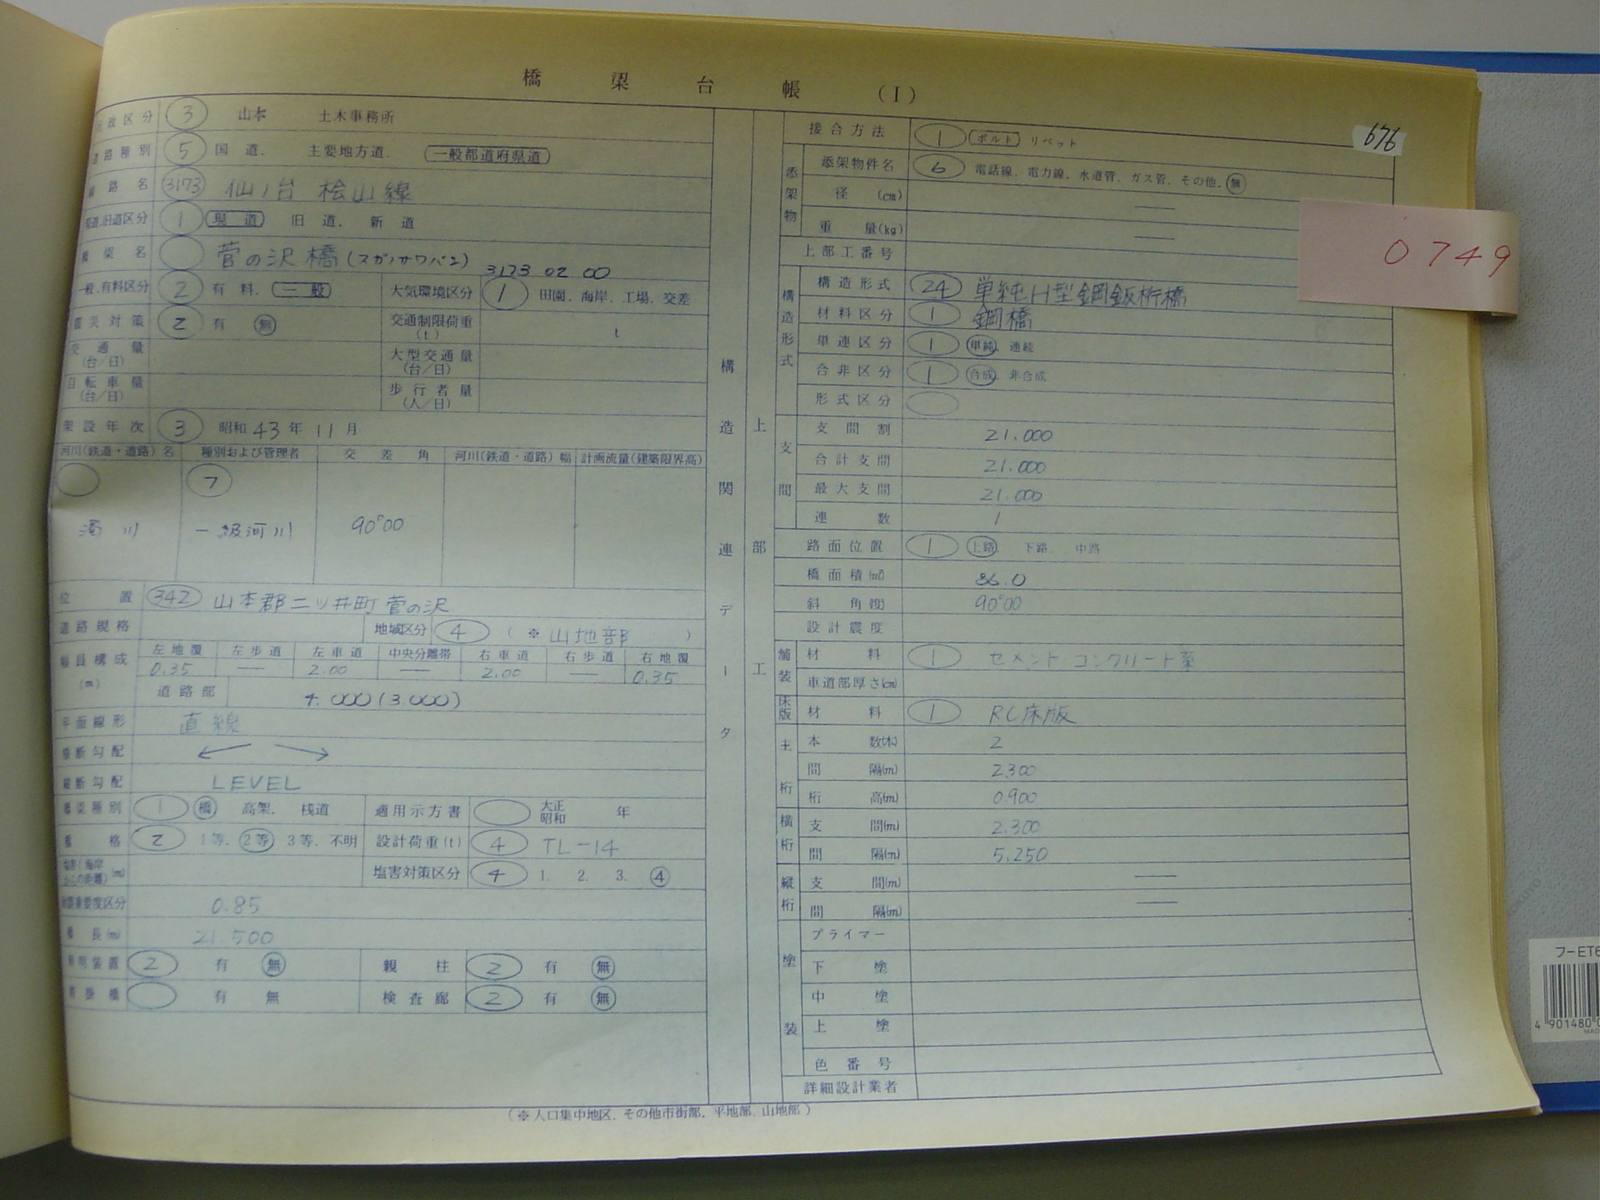 橋梁台帳 (I)
676
0749
政区分 3 山本 土木事務所
道路種別 5 国道. 主要地方道. 一般都道府県道
路名 3173 仙ノ台 桧山線
旧道区分 1 現道 旧道. 新道
梁名 菅の沢橋 (スガノサワバシ) 3173 02 00
一般,有料区分 2 有料. 一般 大気環境区分 1 田園. 海岸. 工場. 交差
震災対策 2 有 無 交通制限荷重(t) t
交通量(台/日) 大型交通量(台/日)
自転車量(台/日) 歩行者量(人/日)
架設年次 3 昭和 43 年 11 月
河川(鉄道・道路)名 種別および管理者 交差角 河川(鉄道・道路)幅 計画流量(建築限界高)
7
濁川 一級河川 90°00
位置 342 山本郡二ツ井町菅の沢
道路規格 地域区分 4 (※ 山地部 )
幅員構成(m) 左地覆 左歩道 左車道 中央分離帯 右車道 右歩道 右地覆
0.35 — 2.00 — 2.00 — 0.35
道路部 4.000 (3.000)
平面線形 直線
横断勾配 ← →
縦断勾配 LEVEL
橋梁種別 1 橋 高架. 桟道 適用示方書 大正 昭和 年
橋格 2 1等. 2等. 3等. 不明 設計荷重(t) 4 TL-14
(m) 塩害対策区分 4 1. 2. 3. 4
重要度区分 0.85
橋長(m) 21.500
照明装置 2 有 無 親柱 2 有 無
橋 有 無 検査廊 2 有 無
(※人口集中地区. その他市街部. 平地部. 山地部)
構造関連データ
上部工
接合方法 1 ボルト リベット
添架物 添架物件名 6 電話線. 電力線. 水道管. ガス管. その他. 無
径(cm) —
重量(kg) —
上部工番号
構造形式 構造形式 24 単純H型鋼鈑桁橋
材料区分 1 鋼橋
単連区分 1 単純 連続
合非区分 1 合成. 非合成
形式区分
支間 支間割 21.000
合計支間 21.000
最大支間 21.000
連数 1
路面位置 1 上路. 下路. 中路
橋面積(㎡) 86.0
斜角(度) 90°00
設計震度
舗装 材料 1 セメント・コンクリート系
車道部厚さ(cm)
床版 材料 1 RC床版
主桁 本数(本) 2
間隔(m) 2.300
桁高(m) 0.900
横桁 支間(m) 2.300
間隔(m) 5.250
縦桁 支間(m) —
間隔(m) —
塗装 プライマー
下塗
中塗
上塗
色番号
詳細設計業者
フーET6
4 901480